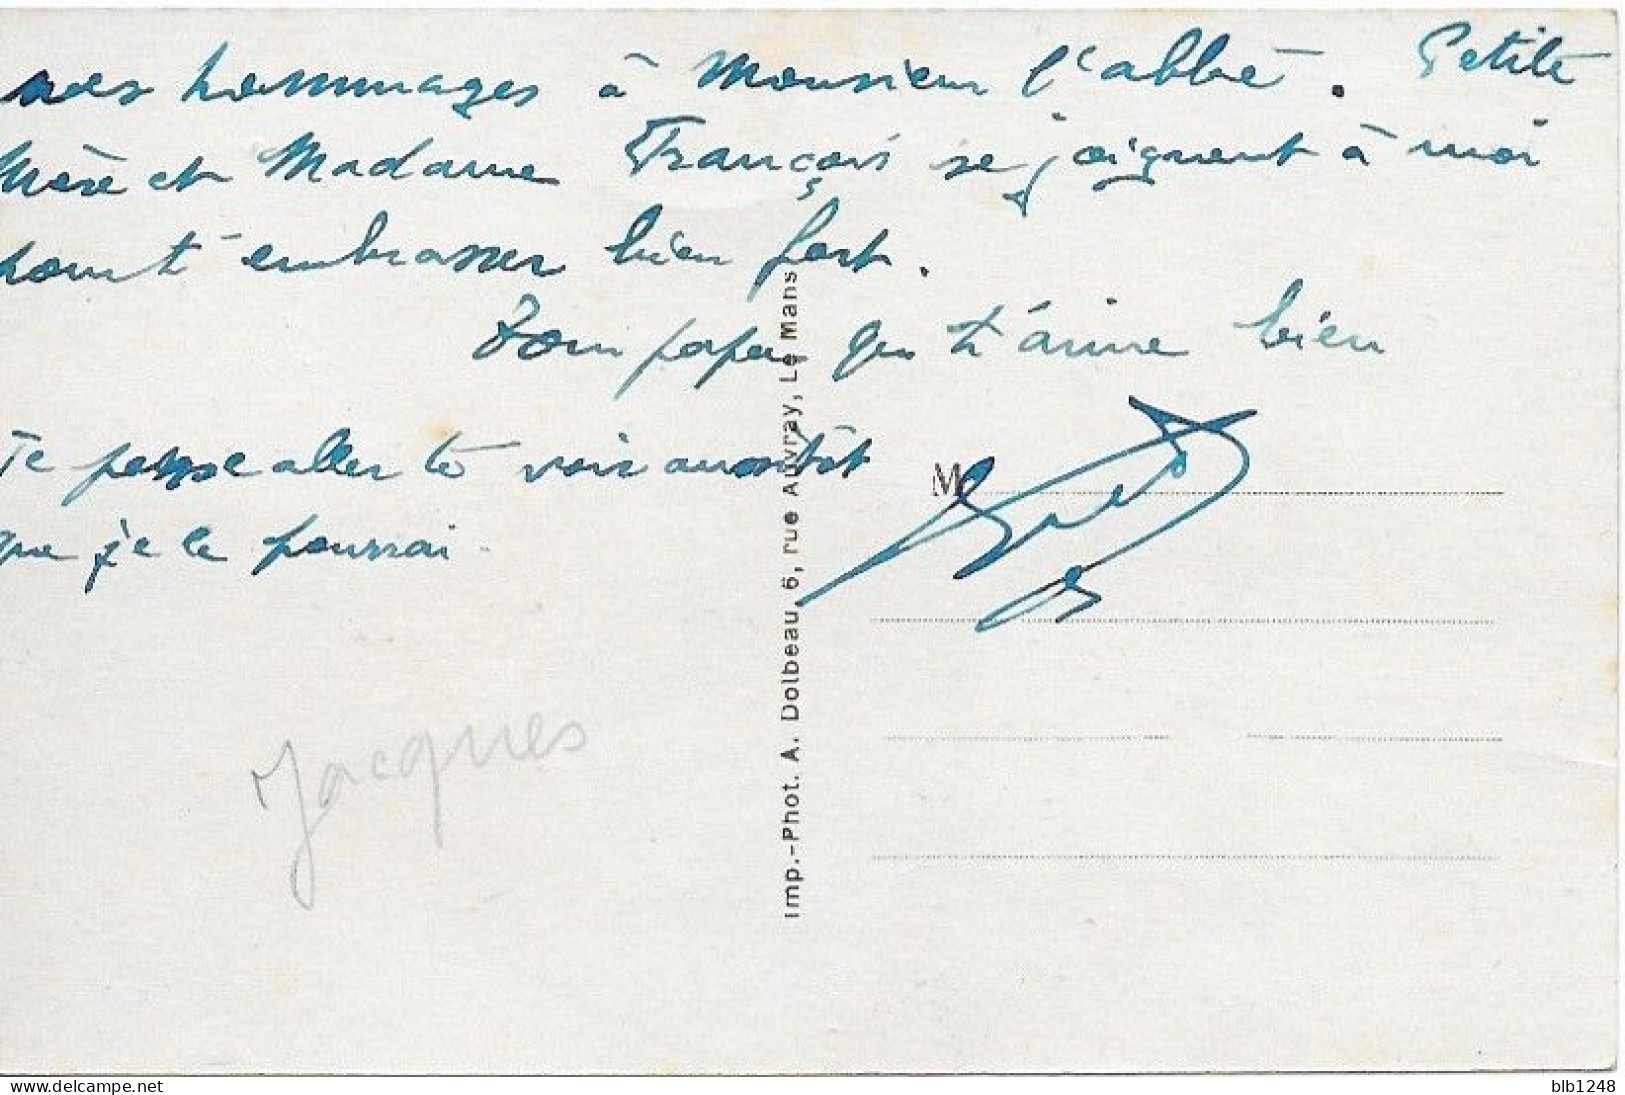 mes hommages à Monsieur l'abbé. Petite
Mère et Madame François se joignent à moi
pour t'embrasser bien fort.
Ton papa qui t'aime bien
Je pense aller te voir aussitôt
que je le pourrai.
M
Jacques
Imp.-Phot. A. Dolbeau, 6, rue Auvray, Le Mans
delcampe.net
blb1248